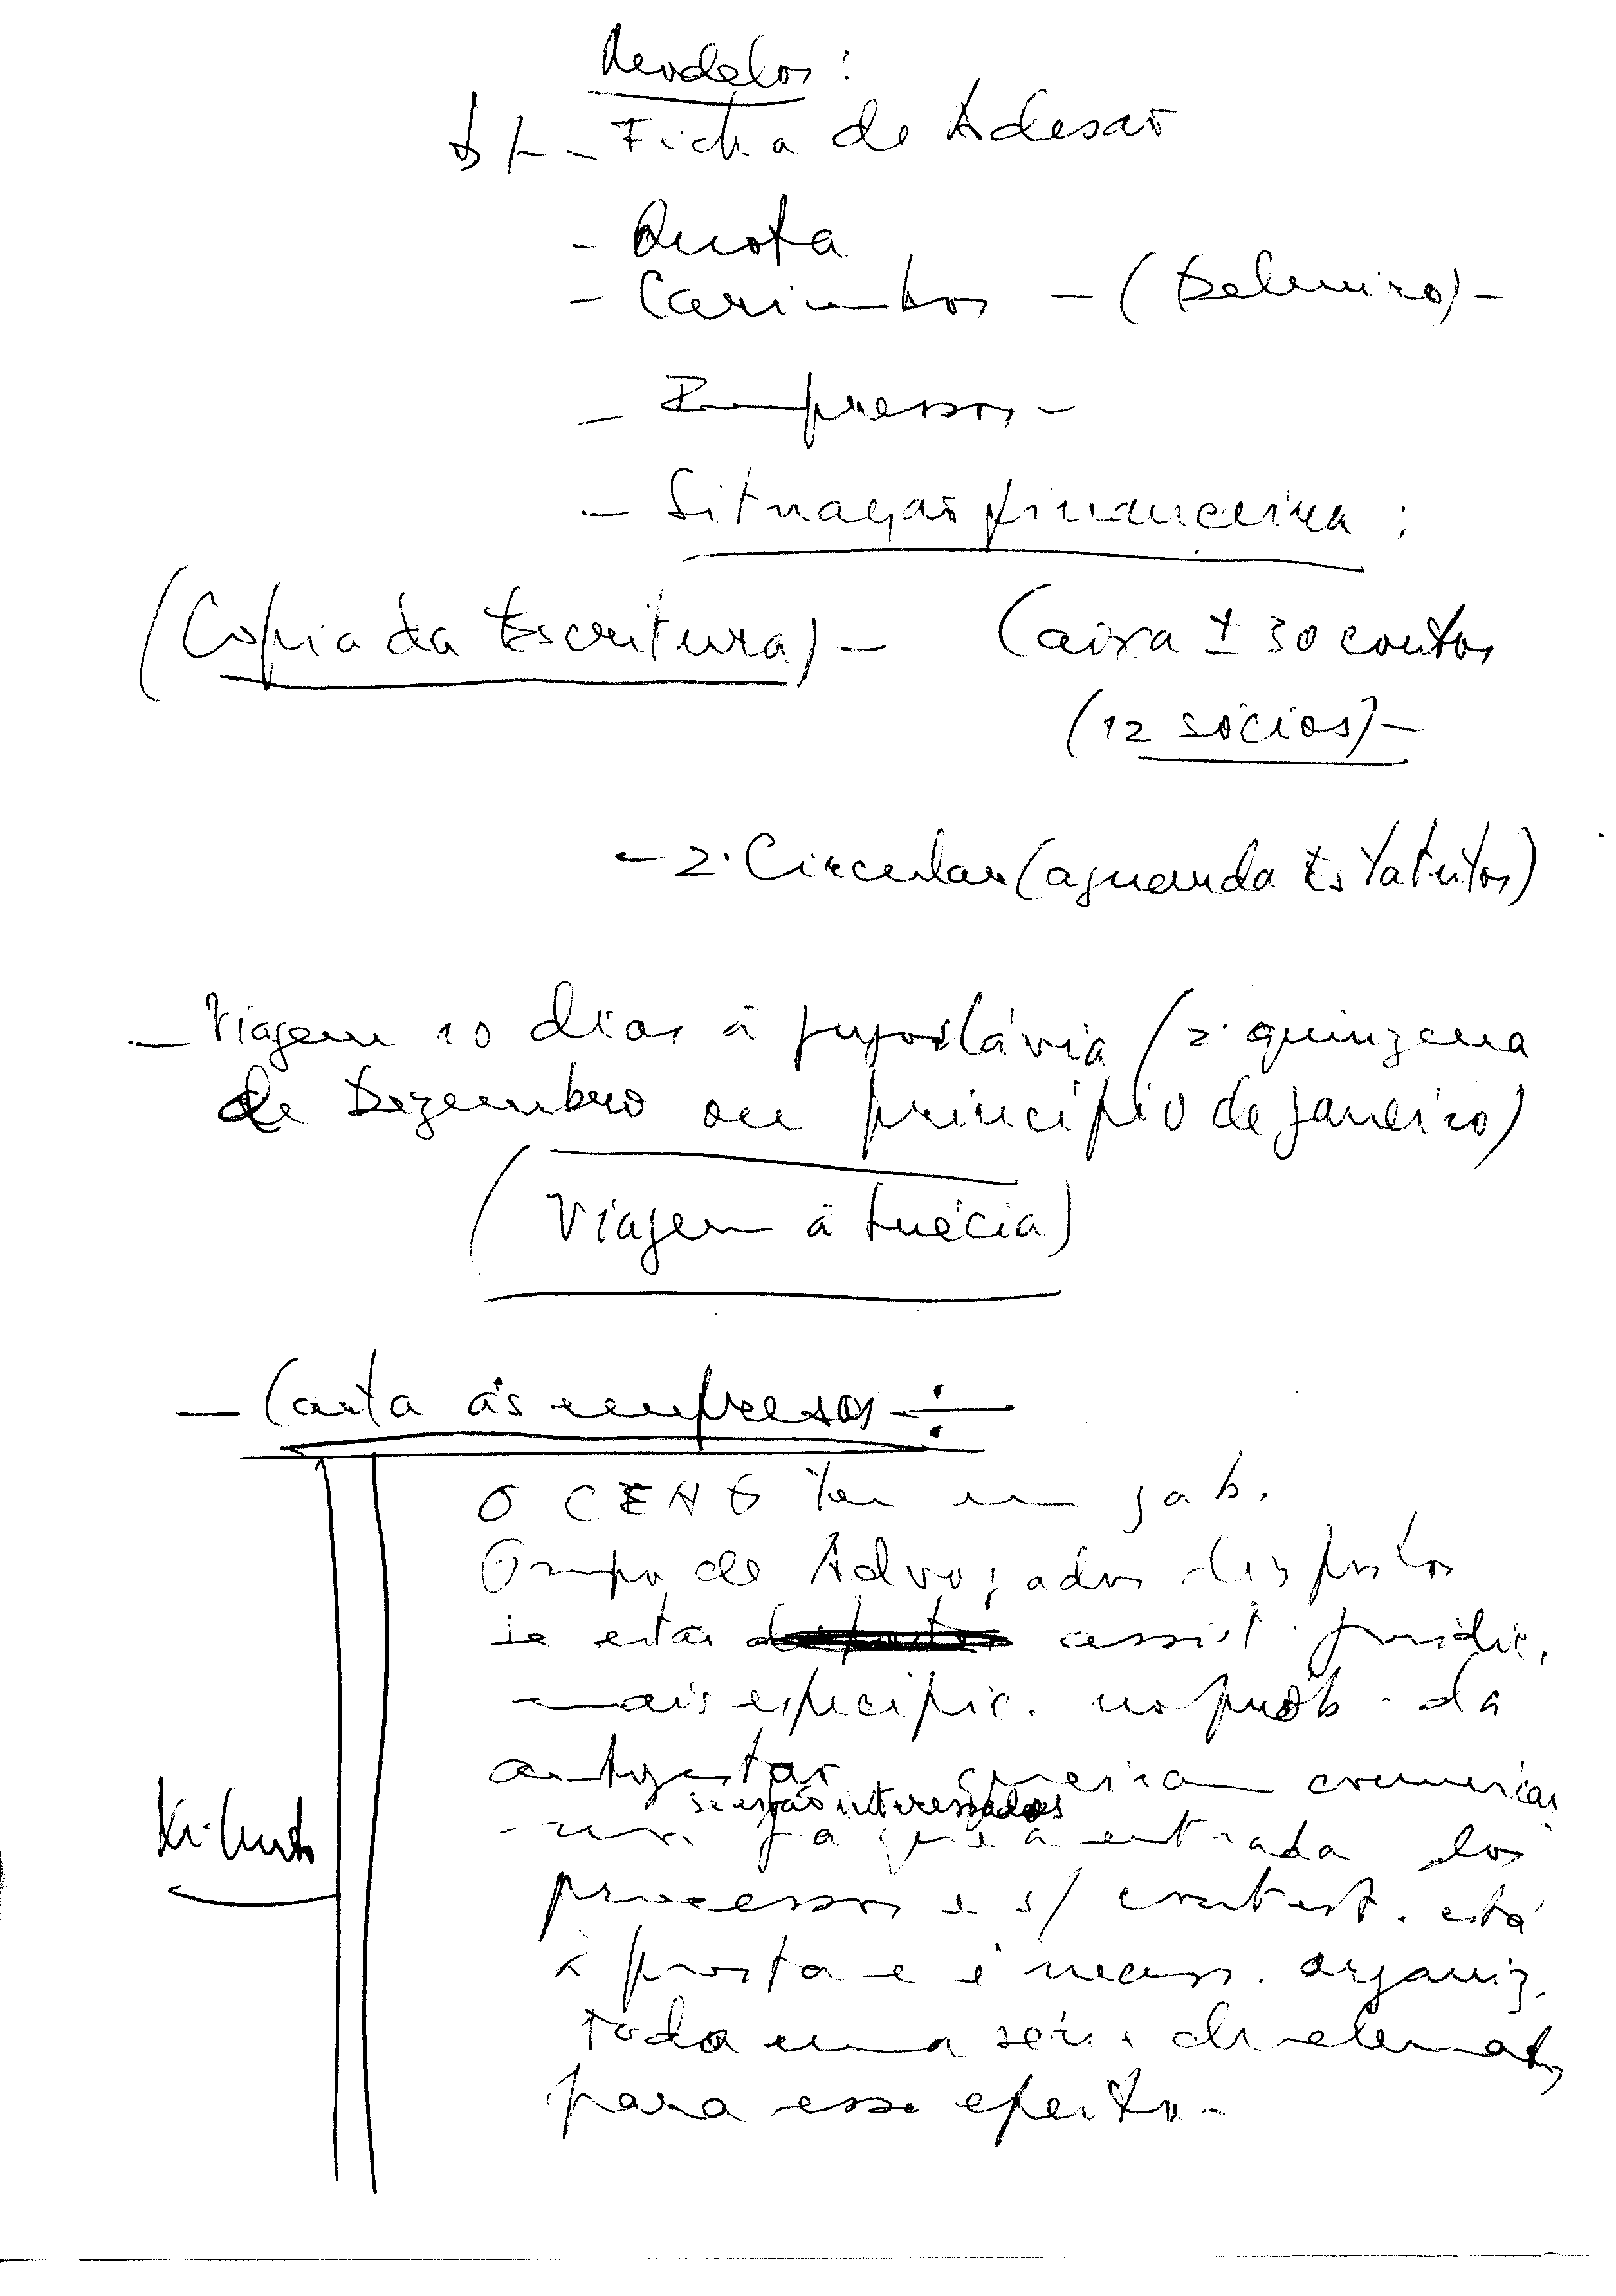 Modelos:
- Ficha de Adesão
- Quota
- Carimbos - (Delmiro) -
- Impressos -
- Situação financeira :
(Copia da Escritura) - Caixa ± 30 contos
(12 sócios) -
- 2. Circular (aguarda Estatutos)
- Viagem 10 dias à Jugoslávia (2. quinzena
de Dezembro ou principio de Janeiro)
(Viagem à Suécia)
- Carta às empresas -
O CENG tem um gab.
Grupo de Advogados dispostos
assist. juridic.
mais especific. no prob. da
autogestão queriam comunicar
se estão interessados
já que a entrada dos
processos e s/ contest. está
à porta e é necess. organiz.
toda uma série de elementos
para esse efeito -